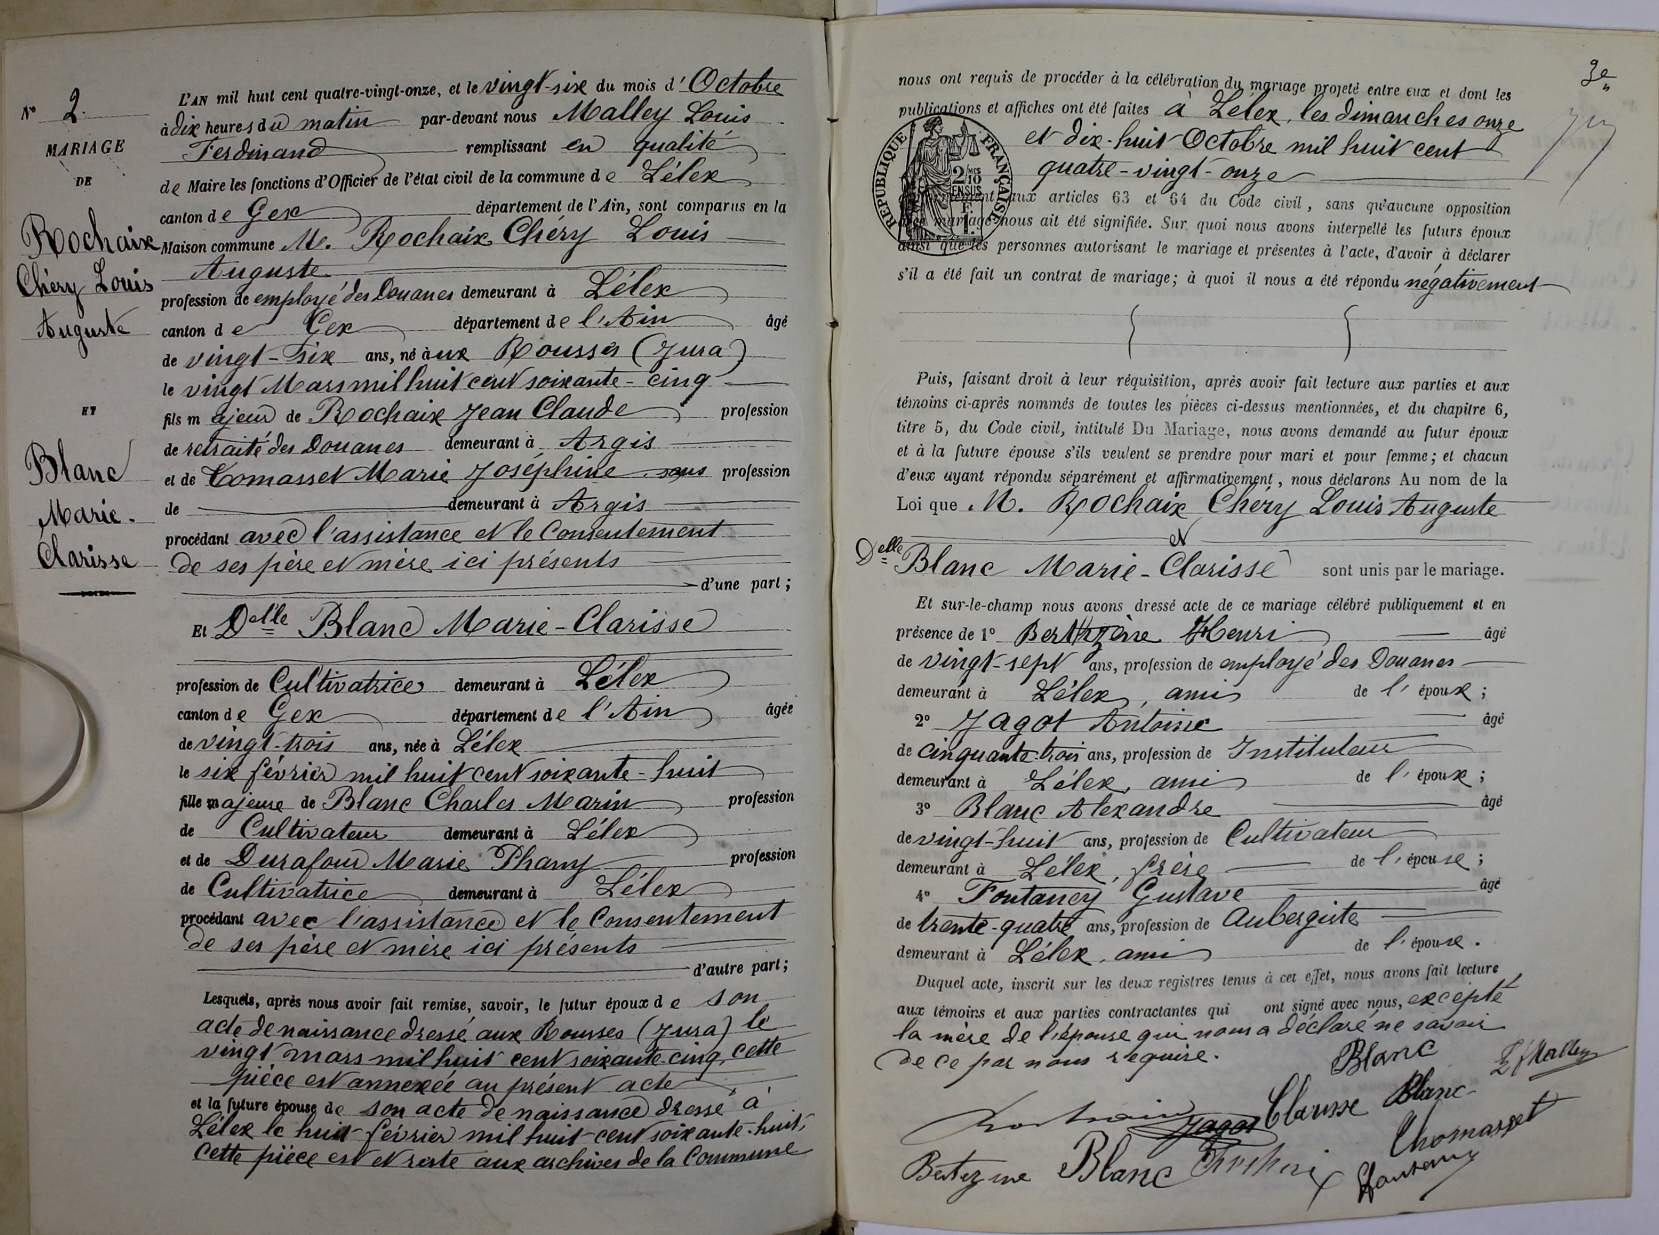 N° 2.
MARIAGE
DE
Rochaix
Chéry Louis
Auguste
ET
Blanc
Marie-
Clarisse
L'AN mil huit cent quatre-vingt-onze, et le vingt-six du mois d'Octobre
à dix heures du matin par-devant nous Malley Louis
Ferdinand remplissant en qualité
de Maire les fonctions d'Officier de l'état civil de la commune de Lélex
canton de Gex département de l'Ain, sont comparus en la
Maison commune M. Rochaix Chéry Louis
Auguste
profession de employé des Douanes demeurant à Lélex
canton de Gex département de l'Ain âgé
de vingt-six ans, né aux Rousses (Jura)
le vingt Mars mil huit cent soixante-cinq
fils majeur de Rochaix Jean Claude profession
de retraité des Douanes demeurant à Argis
et de Tomasset Marie Joséphine sans profession
de demeurant à Argis
procédant avec l'assistance et le Consentement
de ses père et mère ici présents
d'une part;
Et Delle Blanc Marie-Clarisse
profession de Cultivatrice demeurant à Lélex
canton de Gex département de l'Ain âgée
de vingt-trois ans, née à Lélex
le six février mil huit cent soixante-huit
fille majeure de Blanc Charles Marin profession
de Cultivateur demeurant à Lélex
et de Durafour Marie Phany profession
de Cultivatrice demeurant à Lélex
procédant avec l'assistance et le Consentement
de ses père et mère ici présents
d'autre part;
Lesquels, après nous avoir fait remise, savoir, le futur époux de son
acte de naissance dressé aux Rousses (Jura) le
vingt mars mil huit cent soixante cinq, cette
pièce est annexée au présent acte
et la future épouse de son acte de naissance dressé à
Lélex le huit février mil huit cent soixante-huit,
cette pièce est et reste aux archives de la Commune
3e
nous ont requis de procéder à la célébration du mariage projeté entre eux et dont les
publications et affiches ont été faites à Lélex, les dimanches onze
et dix-huit Octobre mil huit cent
quatre-vingt-onze
RÉPUBLIQUE FRANÇAISE
aux articles 63 et 64 du Code civil, sans qu'aucune opposition
mariage nous ait été signifiée. Sur quoi nous avons interpellé les futurs époux
ainsi que les personnes autorisant le mariage et présentes à l'acte, d'avoir à déclarer
s'il a été fait un contrat de mariage; à quoi il nous a été répondu négativement
Puis, faisant droit à leur réquisition, après avoir fait lecture aux parties et aux
témoins ci-après nommés de toutes les pièces ci-dessus mentionnées, et du chapitre 6,
titre 5, du Code civil, intitulé Du Mariage, nous avons demandé au futur époux
et à la future épouse s'ils veulent se prendre pour mari et pour femme; et chacun
d'eux ayant répondu séparément et affirmativement, nous déclarons Au nom de la
Loi que M. Rochaix Chéry Louis Auguste
et
Delle Blanc Marie-Clarisse sont unis par le mariage.
Et sur-le-champ nous avons dressé acte de ce mariage célébré publiquement et en
présence de 1° Henri âgé
de vingt-sept ans, profession de employé des Douanes
demeurant à Lélex, ami de l'époux;
2° Jagot Antoine âgé
de cinquante-trois ans, profession de Instituteur
demeurant à Lélex, ami de l'époux;
3° Blanc Alexandre âgé
de vingt-huit ans, profession de Cultivateur
demeurant à Lélex, frère de l'épouse;
4° Fontaney Gustave âgé
de trente-quatre ans, profession de Aubergiste
demeurant à Lélex, ami de l'épouse.
Duquel acte, inscrit sur les deux registres tenus à cet effet, nous avons fait lecture
aux témoins et aux parties contractantes qui ont signé avec nous, excepté
la mère de l'épouse qui nous a déclaré ne savoir
de ce par nous requise.
Blanc
Jagot Clarisse Blanc
Thomasset
Blanc